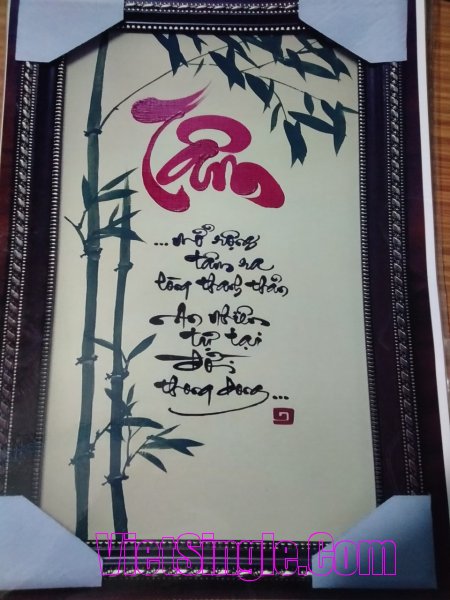 Tâm
...mở rộng
tâm ra
lòng thanh thản
An nhiên
tự tại
thong dong...
VietSingle.Com